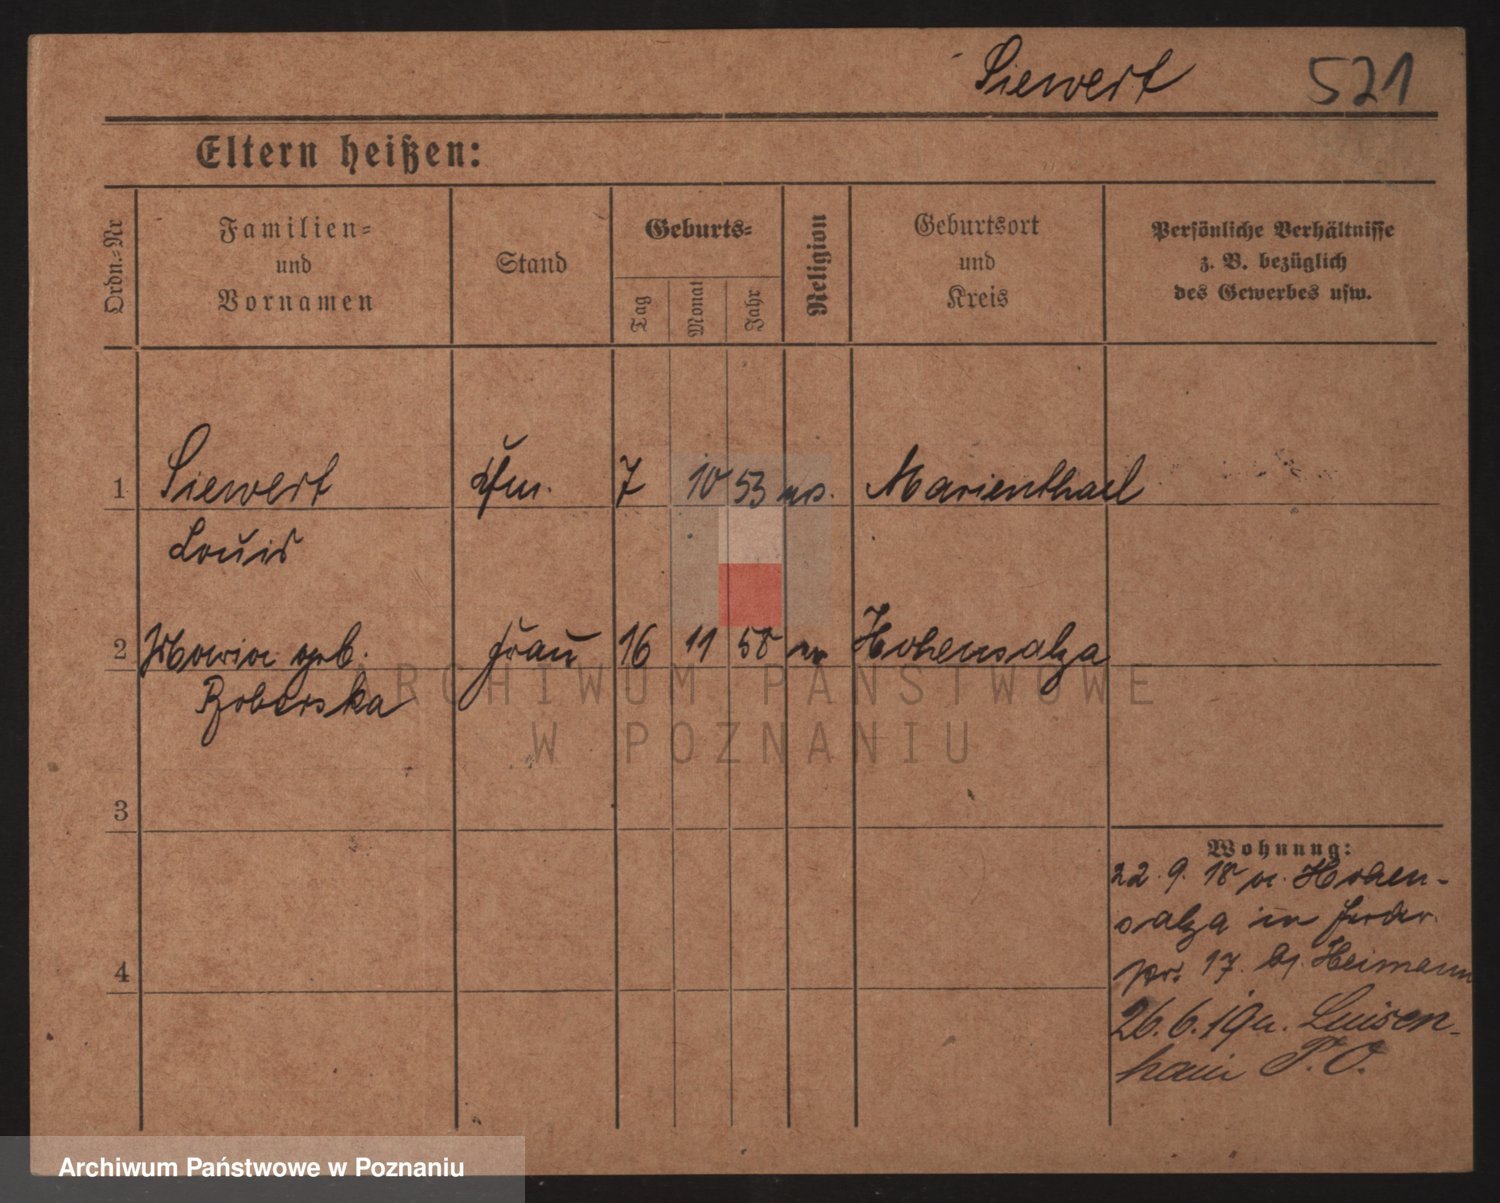 Siewert 521
Eltern heißen:
Ordn.-Nr
Familien-
und
Vornamen
Stand
Geburts-
Tag
Monat
Jahr
Religion
Geburtsort
und
Kreis
Persönliche Verhältnisse
z. B. bezüglich
des Gewerbes usw.
1 Siewert Kfm. 7 10 53 mos. Marienthal
Louis
2 Maria geb. Frau 16 11 58 Hohensalza
3
4
Wohnung:
22. 9. 18 v. Hohen-
salza in
17. b/. Heimann
26. 6. 19 n. Luisen-
hain P. O.
ARCHIWUM PAŃSTWOWE
W POZNANIU
Archiwum Państwowe w Poznaniu